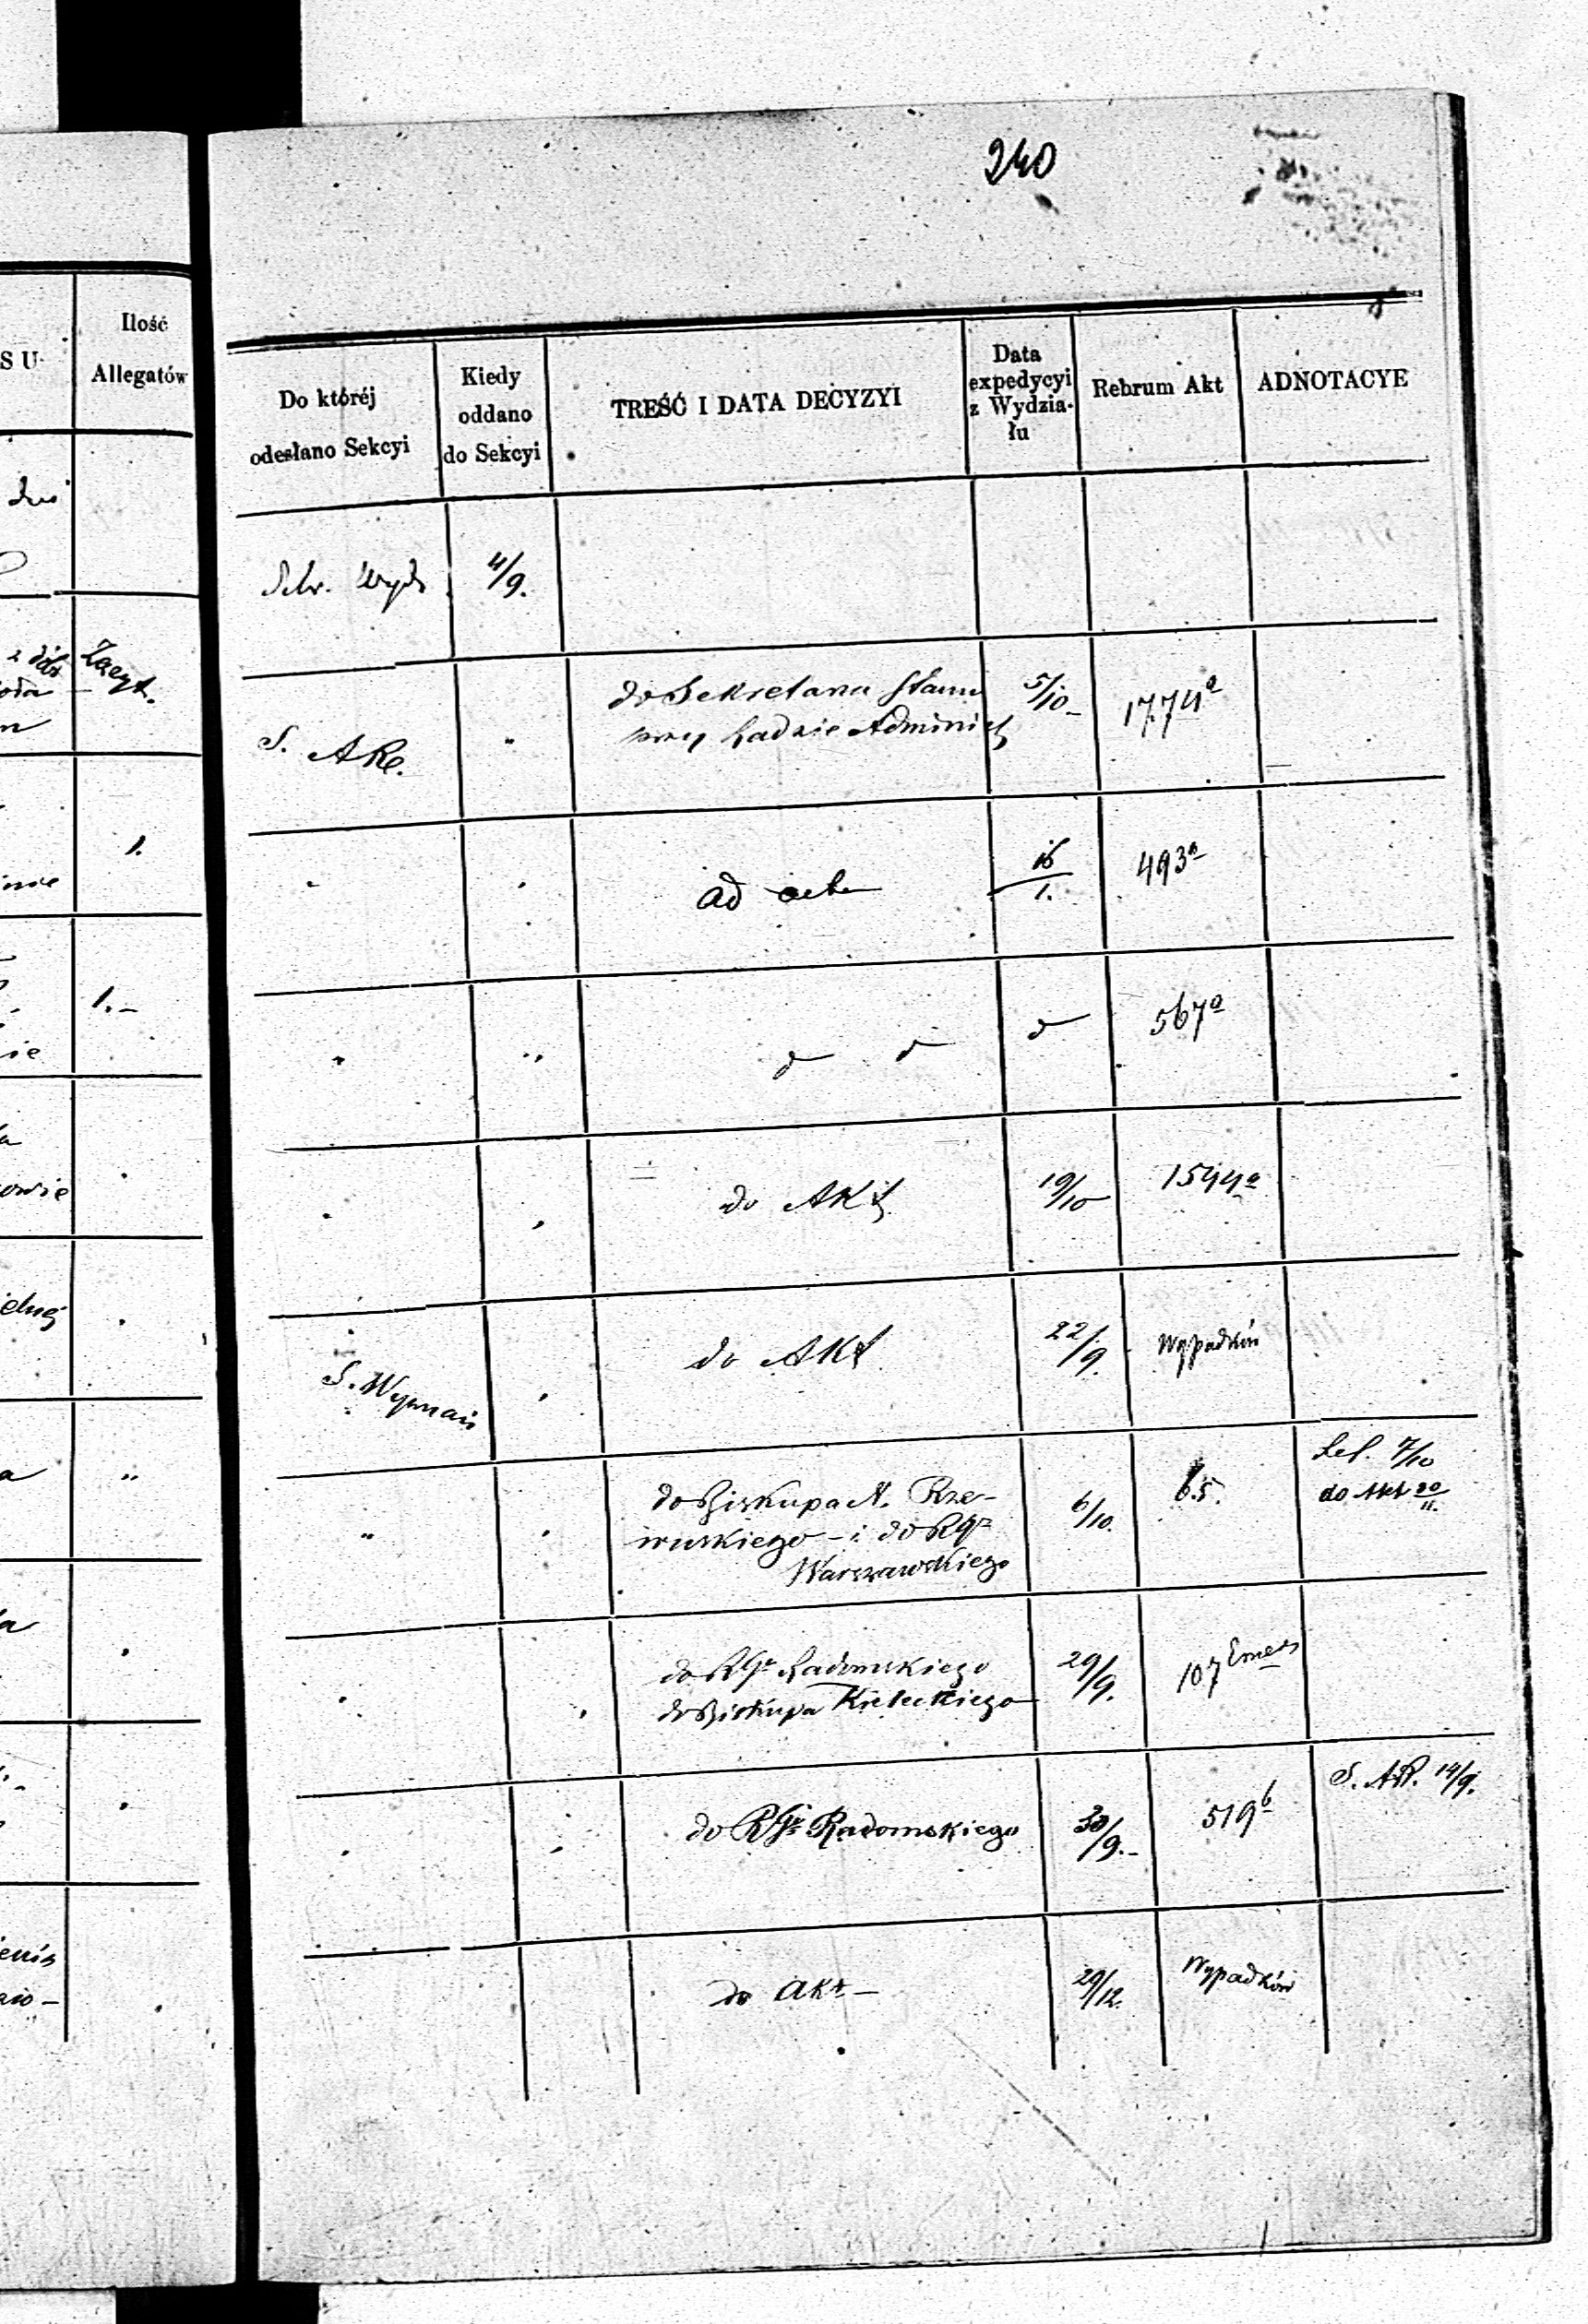 240
S U
Ilość
Allegatów
Do któréj
odesłano Sekcyi
Kiedy
oddano
do Sekcyi
TREŚĆ I DATA DECYZYI
Data
expedycyi
z Wydzia-
łu
Rebrum Akt
ADNOTACYE
4/9.
S. AKr.
"
do Sekretarza Stanu
przy Radzie Administ
5/10-
1774a
1.
"
"
ad acta
16/1.
493a
1.-
"
"
d d
d
567a
"
"
do Akt
19/10
1544a
S. Wyznań
"
do Akt
22/9.
Wypadków
"
"
"
do Biskupa A. Rze-
wuskiego - i do RGr
Warszawskiego
6/10.
65.
Ref. 7/10
do Akt 20/11.
"
"
do RGr Radomskiego
do Biskupa Kieleckiego
29/9.
107 Emer
"
"
do RGr Radomskiego
30/9.-
519b
S. AR. 14/9.
do Akt -
29/12.
Wypadków